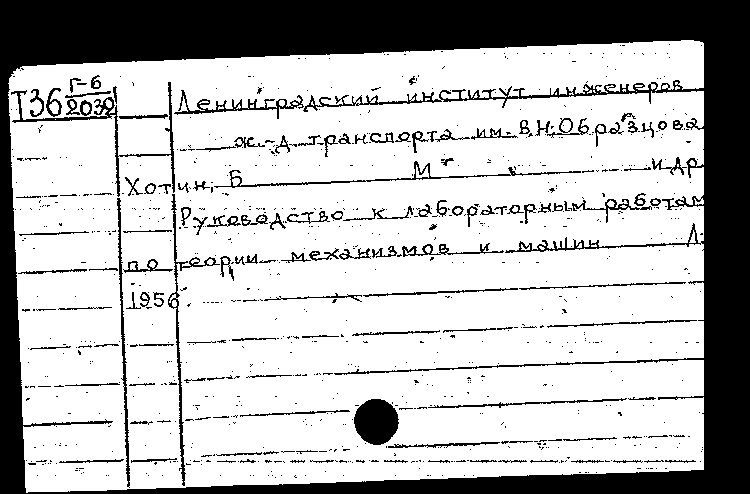 Т36 Г-6 2032
Ленинградский институт инженеров
ж.-д транспорта им. В.Н.Образцова
Хотин, Б М и др
Руководство к лабораторным работам
по теории механизмов и машин Л.
1956.